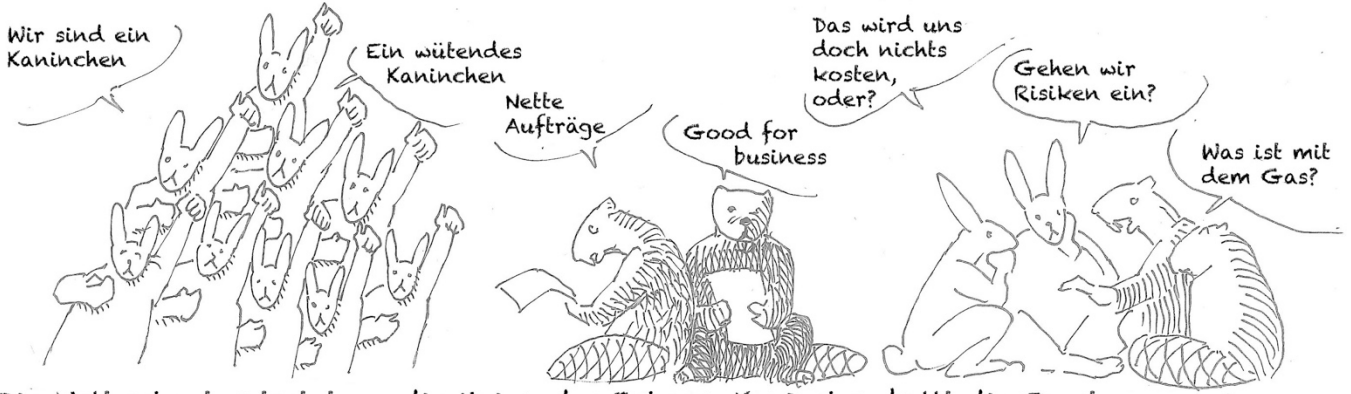 Wir sind ein
Kaninchen
Ein wütendes
Kaninchen
Nette
Aufträge
Good for
business
Das wird uns
doch nichts
kosten,
oder?
Gehen wir
Risiken ein?
Was ist mit
dem Gas?